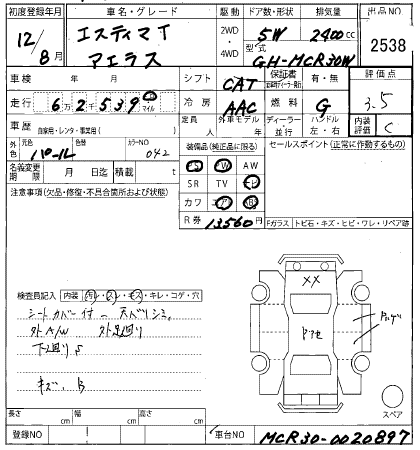 初度登録年月 車名・グレード 駆動 ドア数・形状 排気量 出品NO
12/8月 エスティマT アエラス 2WD ・ 4WD 5W 2400cc 2538
型式 GH-MCR30W
車検 年 月 シフト CAT 保証書 有・無 評価点 3.5
走行 6万2千539 マイル 冷房 AAC 燃料 G
車歴 自家用・レンタ・事業用( ) 定員 人 外車モデル 年 ディーラー 並行 ハンドル 左・右 内装評価 C
外色 元色 パール 色替 カラーNO 042 装備品(純正品に限る) セールスポイント(正常に作動するもの)
名義変更期限 月 日迄 積載 t PS PW AW
注意事項(欠品・修復・不具合箇所および状態) SR TV ナビ
カワ エアB
R券 13560円 Fガラス トビ石・キズ・ヒビ・ワレ・リペア跡
検査員記入 内装 汚レ・スレ・キズ・キレ・コゲ・穴
シートカバー付
外A/W 外足廻り
下廻りS
キズ、B
XX
スペア
長さ cm 幅 cm 高さ cm
登録NO 車台NO MCR30-0020897